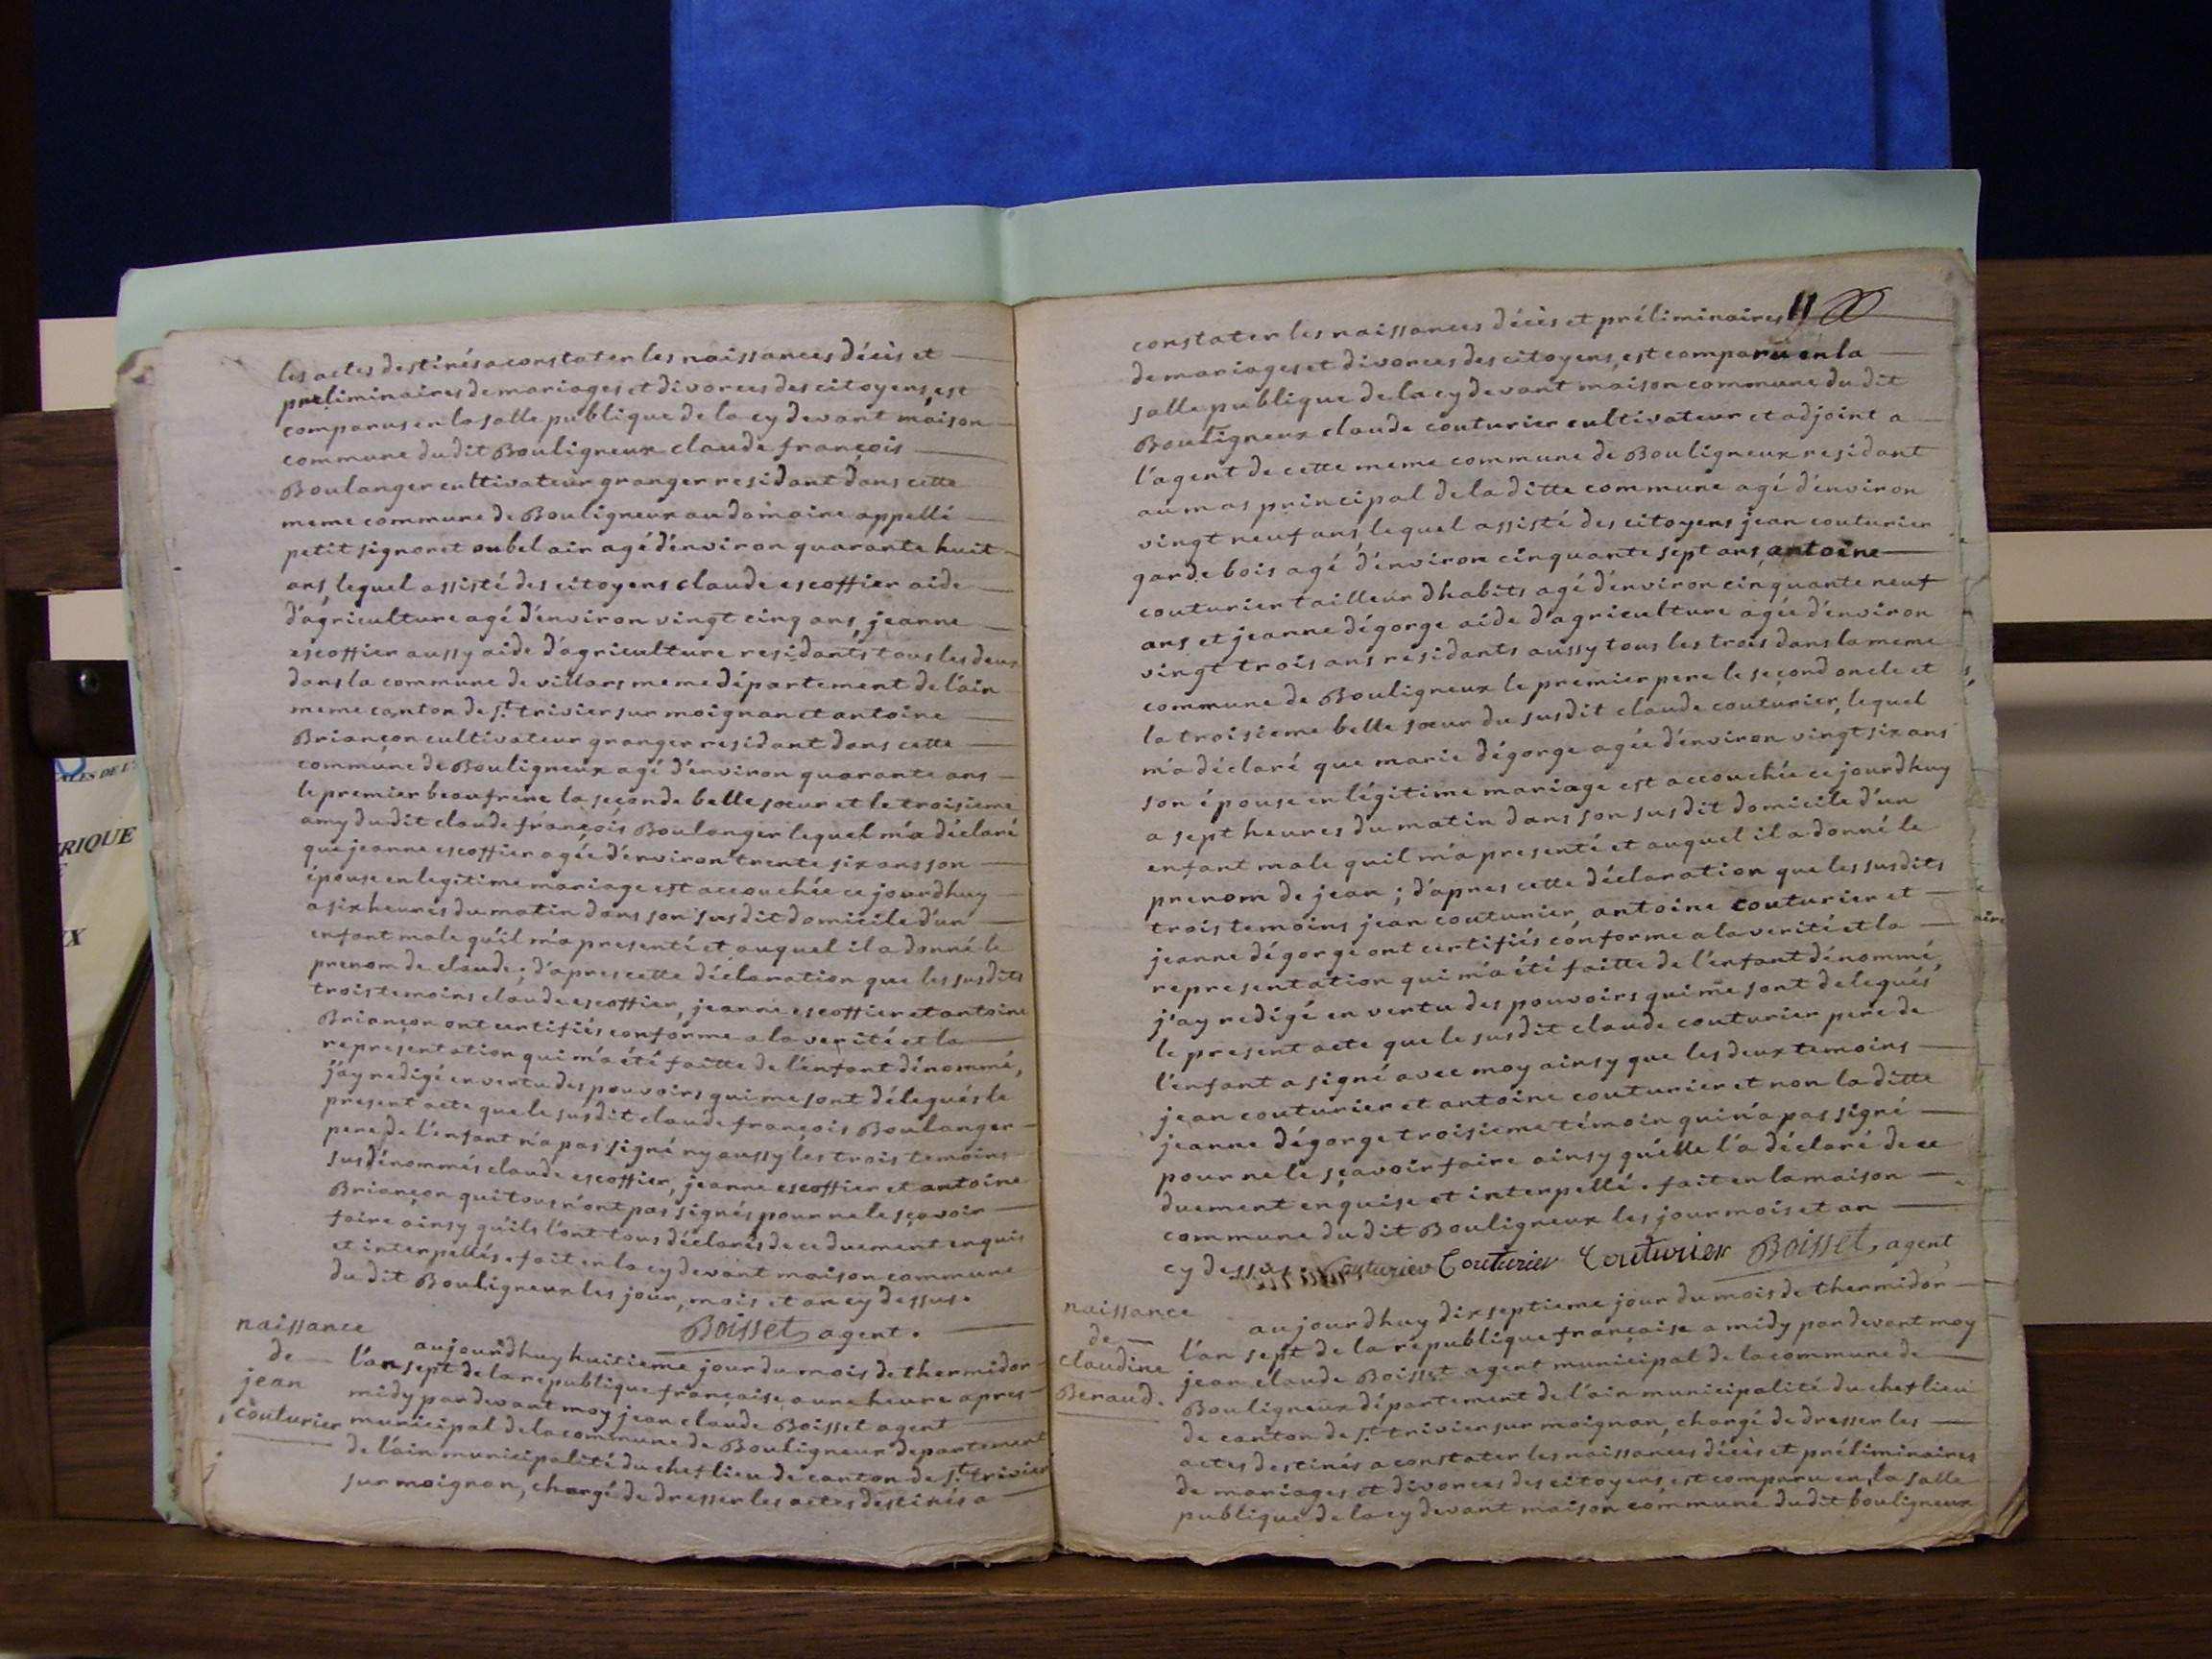 les actes destinés a constater les naissances décès et
preliminaires de mariages et divorces des citoyens, est
comparus en la salle publique de la cy devant maison
commune du dit Bouligneux claude françois
Boulanger cultivateur granger residant dans cette
meme commune de Bouligneux au domaine appellé
petit signoret ou bel air agé d'environ quarante huit
ans, lequel assisté des citoyens claude escoffier aide
d'agriculture agé d'environ vingt cinq ans, jeanne
escoffier aussy aide d'agriculture residants tous les deux
dans la commune de villars meme département de l'ain
meme canton de st. trivier sur moignan et antoine
Briançon cultivateur granger residant dans cette
commune de Bouligneux agé d'environ quarante ans
le premier beaufrere la seconde belle sœur et le troisieme
amy du dit claude françois Boulanger lequel m'a déclaré
que jeanne escoffier agée d'environ trente six ans son
épouse en legitime mariage est accouchée ce jourdhuy
a six heures du matin dans son susdit domicile d'un
enfant male qu'il m'a presenté et auquel il a donné le
prenom de claude; d'apres cette déclaration que les susdits
trois temoins claude escoffier, jeanne escoffier et antoine
Briançon ont certifiés conforme a la verité et la
representation qui m'a été faitte de l'enfant dénommé,
j'ay redigé en vertu des pouvoirs qui me sont délegués le
present acte que le susdit claude françois Boulanger
pere de l'enfant n'a pas signé ny aussy les trois temoins
susdénommés claude escoffier, jeanne escoffier et antoine
Briançon qui tous n'ont pas signés pour ne le sçavoir
faire ainsy qu'ils l'ont tous déclarés de ce duement enquis
et interpellés. fait en la cy devant maison commune
du dit Bouligneux les jour, mois et an cy dessus.
Boisset, agent.
naissance
de
jean
couturier
aujourdhuy huitieme jour du mois de thermidor
l'an sept de la republique française a une heure apres
midy pardevant moy jean claude Boisset agent
municipal de la commune de Bouligneux departement
de l'ain municipalité du chef lieu de canton de st. trivier
sur moignan, chargé de dresser les actes destinés a
11
constater les naissances décès et préliminaires
de mariages et divorces des citoyens, est comparu en la
salle publique de la cy devant maison commune du dit
Bouligneux claude couturier cultivateur et adjoint a
l'agent de cette meme commune de Bouligneux residant
au mas principal de la ditte commune agé d'environ
vingt neuf ans, lequel assisté des citoyens jean couturier
garde bois agé d'environ cinquante sept ans, antoine
couturier tailleur dhabits agé d'environ cinquante neuf
ans et jeanne dégorge aide d'agriculture agée d'environ
vingt trois ans residants aussy tous les trois dans la meme
commune de Bouligneux le premier pere le second oncle et
la troisieme belle sœur du susdit claude couturier, lequel
m'a déclaré que marie dégorge agée d'environ vingt six ans
son épouse en légitime mariage est accouchée ce jourdhuy
a sept heures du matin dans son susdit domicile d'un
enfant male quil m'a presenté et auquel il a donné le
prenom de jean; d'apres cette déclaration que les susdits
trois temoins jean couturier, antoine couturier et
jeanne dégorge ont certifiés conforme a la verité et la
representation qui m'a été faitte de l'enfant dénommé,
j'ay redigé en vertu des pouvoirs qui me sont delegués
le present acte que le susdit claude couturier pere de
l'enfant a signé avec moy ainsy que les deux temoins
jean couturier et antoine couturier et non la ditte
jeanne dégorge troisieme témoin qui n'a pas signé
pour ne le sçavoir faire ainsy qu'elle l'a déclaré de ce
duement enquise et interpellé. fait en la maison
commune du dit Bouligneux les jour mois et an
cy dessus. Couturier Couturier Couturier Boisset, agent
naissance
de
claudine
Beraud.
aujourdhuy dixseptieme jour du mois de thermidor
l'an sept de la republique française a midy pardevant moy
jean claude Boisset agent municipal de la commune de
Bouligneux département de l'ain municipalité du chef lieu
de canton de st. trivier sur moignan, chargé de dresser les
actes destinés a constater les naissances décès et préliminaires
de mariages et divorces des citoyens, est comparu en la salle
publique de la cy devant maison commune dudit bouligneux